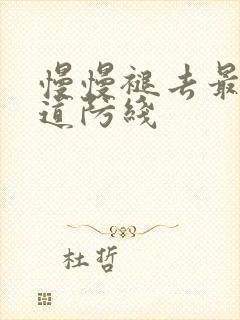 慢慢褪去最
道防线
杜哲